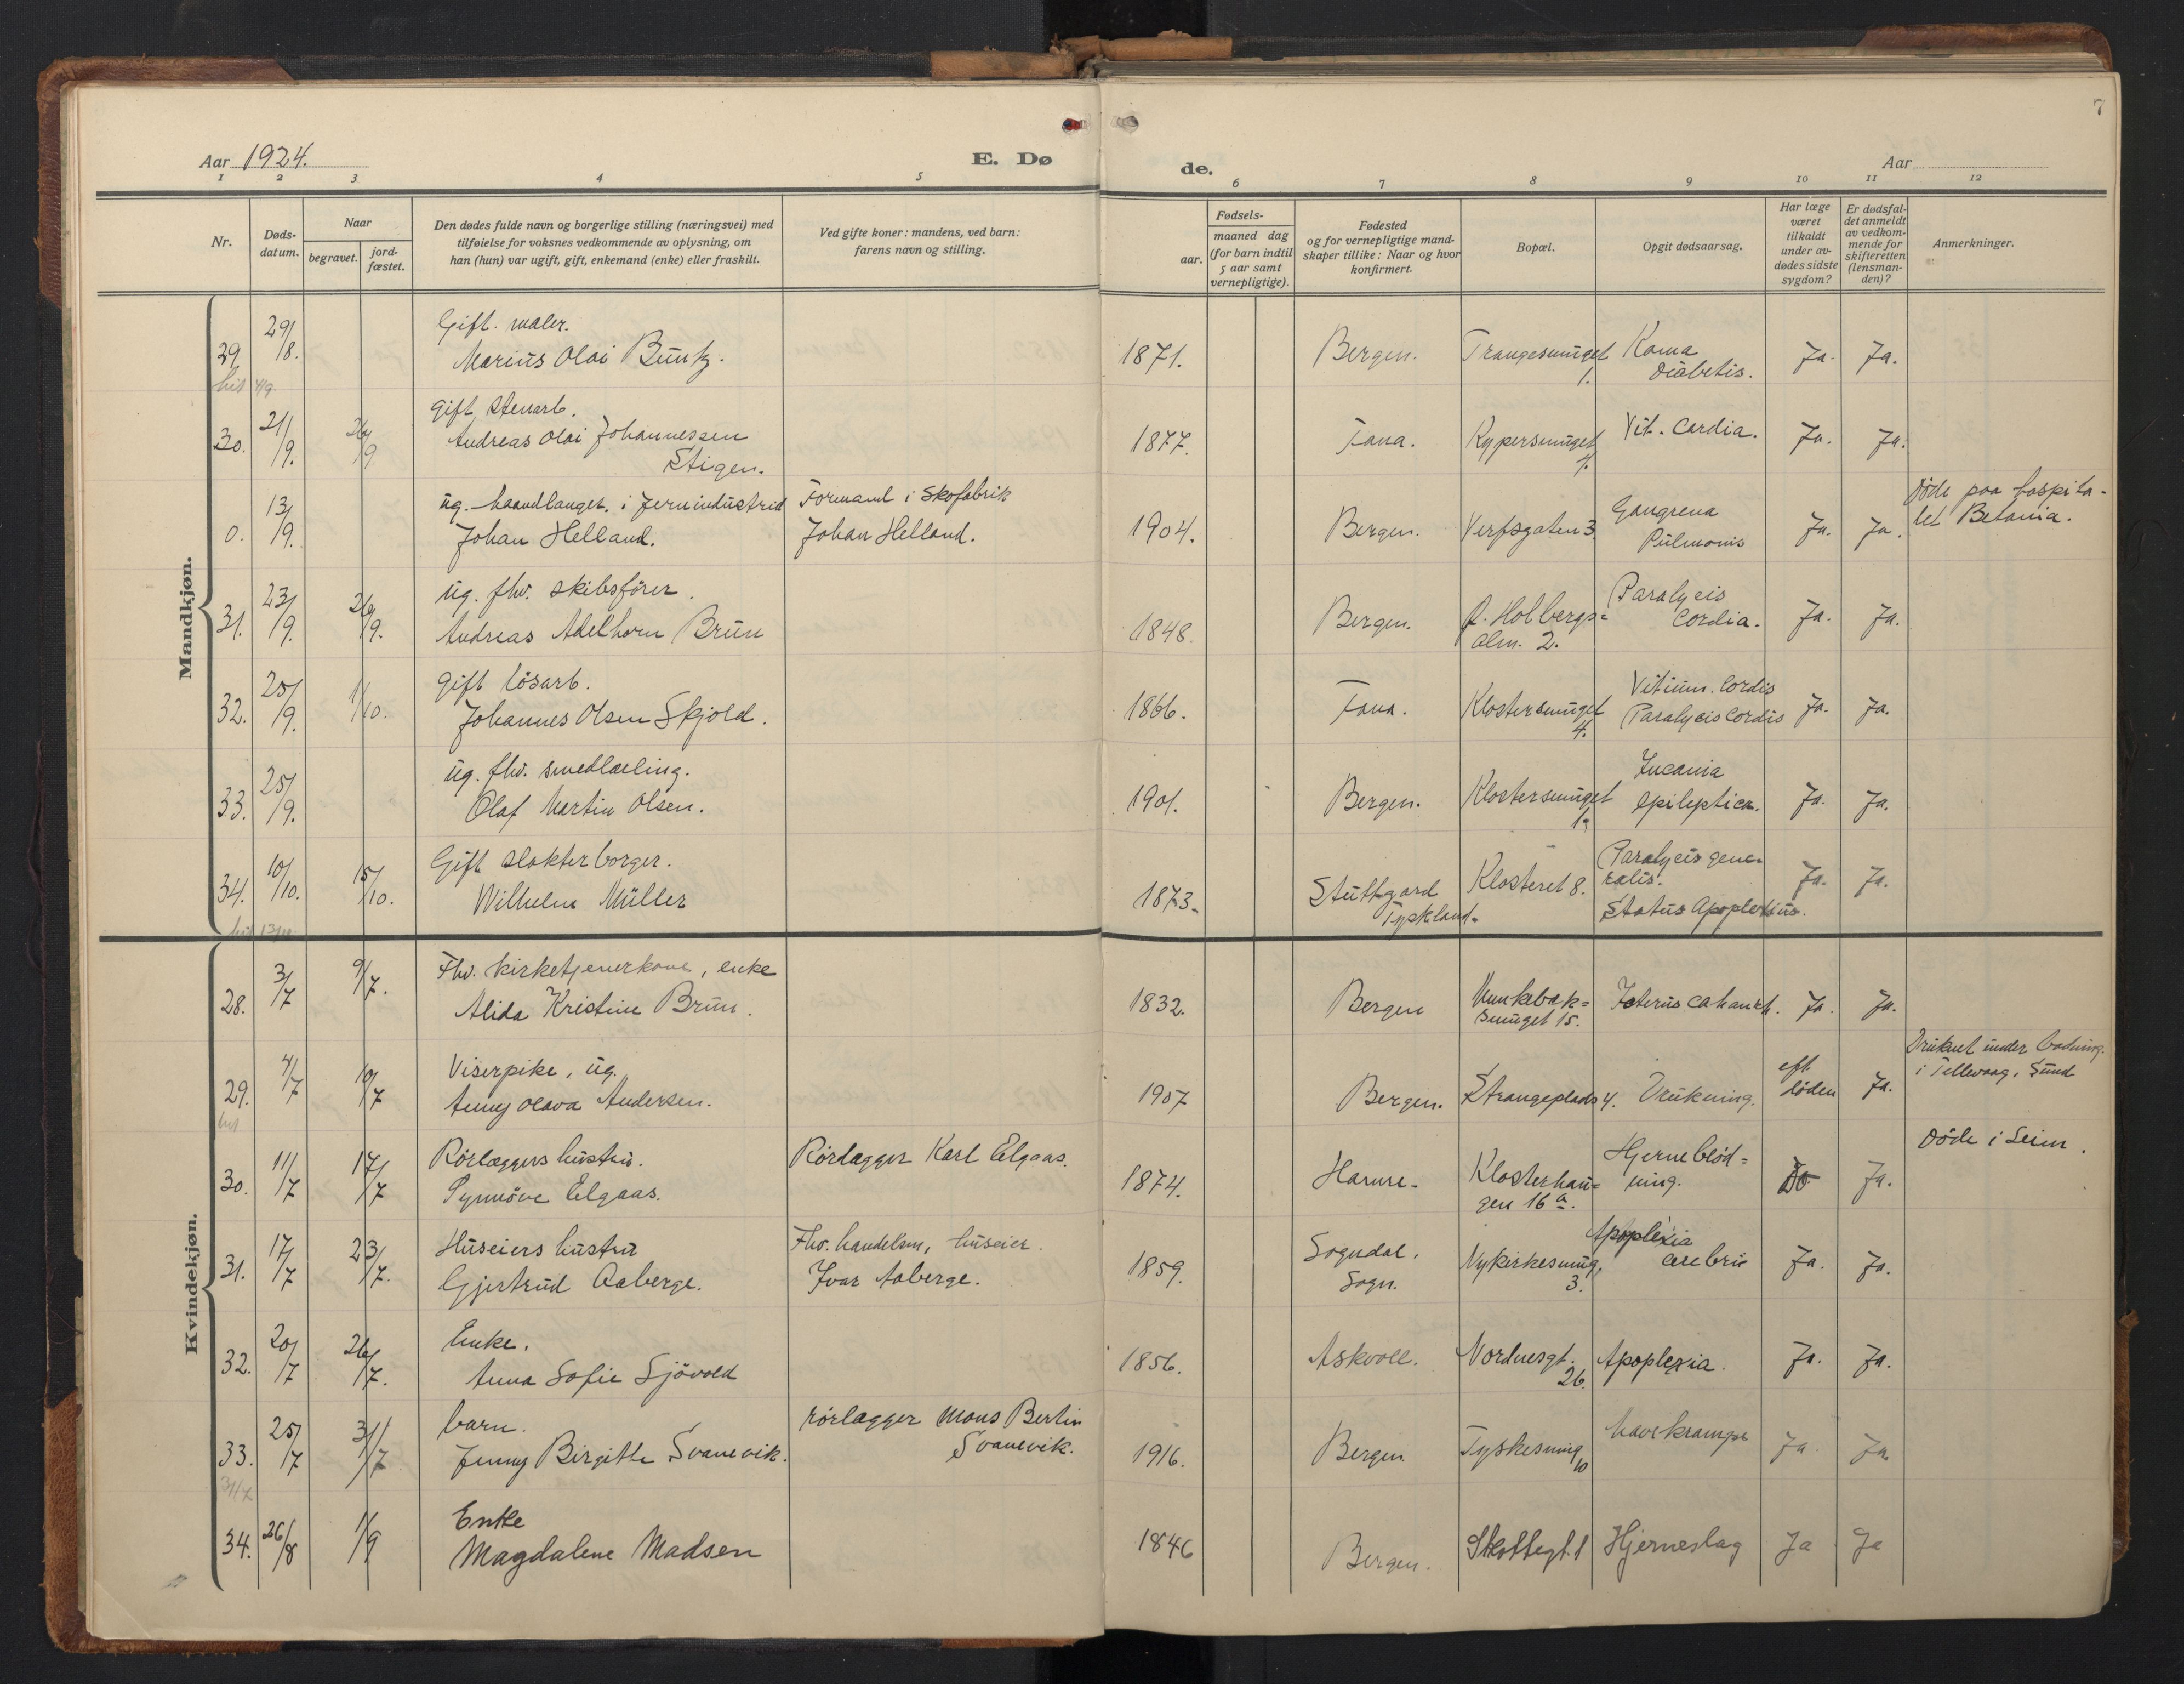 7
Aar 1924.
E. Dø
de.
Aar
1 2 3 4 5 6 7 8 9 10 11 12
Nr.
Døds-
datum.
Naar
begravet.
jord-
fæstet.
Den dødes fulde navn og borgerlige stilling (næringsvei) med
tilføielse for voksnes vedkommende av oplysning, om
han (hun) var ugift, gift, enkemand (enke) eller fraskilt.
Ved gifte koner: mandens, ved barn:
farens navn og stilling.
Fødsels-
aar.
maaned dag
(for barn indtil
5 aar samt
vernepligtige).
Fødested
og for vernepligtige mand-
skaper tillike: Naar og hvor
konfirmert.
Bopæl.
Opgit dødsaarsag.
Har læge
været
tilkaldt
under av-
dødes sidste
sygdom?
Er dødsfal-
det anmeldt
av vedkom-
mende for
skifteretten
(lensman-
den)?
Anmerkninger.
Mandkjøn.
29. 29/8.
Gift. maler.
Marius Olai Buntz.
1871.
Bergen.
Trangesmuget
1.
Koma
Diabetis.
Ja. Ja.
4/9.
30. 21/9. 26/9
Gift stenarb.
Andreas Olai Johannessen
Stigen.
1877.
Fana.
Kypersmuget
Vit. Cordia.
Ja. Ja.
0. 13/9.
ug. haandlanger. i Jernindustrid
Johan Helland.
Formand i Skofabrik
Johan Helland.
1904.
Bergen.
Verfsgaten 3
Gangrena
Pulmonis
Ja. Ja.
Døde paa hospita-
let Betania.
31. 23/9. 26/9.
ug. fhv. skibsfører.
Andreas Adelhorn Brun
1848.
Bergen.
L. Holbergs=
alm. 2.
Paralysis
Cordia.
Ja. Ja.
32. 25/9. 1/10.
Gift løsarb.
Johannes Olsen Skjold.
1866.
Fana.
Klostersmuget
4.
Vitium. Cordis
Paralysis Cordis
Ja. Ja.
33. 25/9.
ug. fhv. smedlærling.
Olaf Martin Olsen.
1901.
Bergen.
Klostersmuget
epileptica.
Ja. Ja.
34. 10/10. 15/10.
Gift slakterborger.
Wilhelm Müller
1873.
Stuttgard
Tyskland.
Klosteret 8.
Paralysis gene-
ralis.
Status Apoplexius.
Ja. Ja.
Kvindekjøn.
28. 3/7 9/7.
Fhv. kirketjenerkone, enke
Alida Kristine Brun.
1832.
Bergen
Munkebæk=
smuget 15.
Icterus catarrh.
Ja. Ja.
29. 4/7 10/7
Viserpike, ug.
Anny Olava Andersen.
1907
Bergen.
Strangeplads 4.
Drukning.
eft.
døden
Ja.
Druknet under badning.
i Tellevaag, Sund
30. 11/7 17/7
Rørlæggers hustru.
Synnøve Elgaas.
Rørlægger Karl Elgaas.
1874.
Hamre.
Klosterhau=
gen 16 a.
Hjerneblød=
ning.
Ja.
Døde i Seim.
31. 17/7 23/7.
Huseiers hustru
Gjertrud Aaberge.
Fhv. handelsm, huseier.
Ivar Aaberge.
1859.
Sogndal.
Sogn.
Nykirkesmug,
3.
Apoplexia
cerebri
Ja. Ja.
32. 20/7 26/7.
Enke.
Anna Sofie Sjøvold
1856.
Askvoll.
Nordnesgt.
26.
Apoplexia.
Ja. Ja.
33. 25/7 31/7
barn.
Jenny Birgitte Svanevik.
rørlægger Mons Bertin
Svanevik.
1916.
Bergen
Tyskesmug
10
Ja. Ja.
31/7
34. 26/8 1/9
Enke
Magdalene Madsen
1846
Bergen.
Skottegt. 1
Hjerneslag
Ja Ja